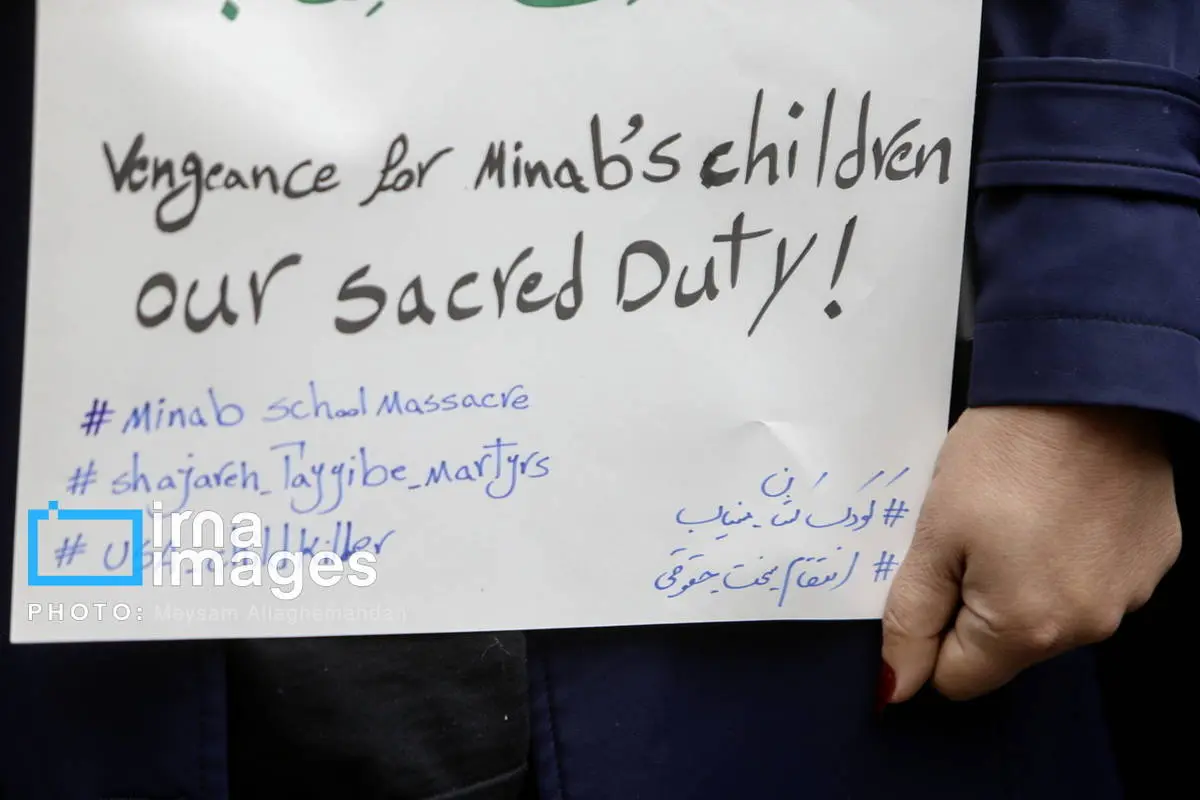 Vengeance for Minab's children
our sacred Duty!
# Minab school Massacre
# shajareh_Tayyibe_Martyrs
# USA_childkiller
# کودک‌کشان_میناب
# انتقام_سخت_حقوقی
irna
images
PHOTO: Meysam Allaghemandan